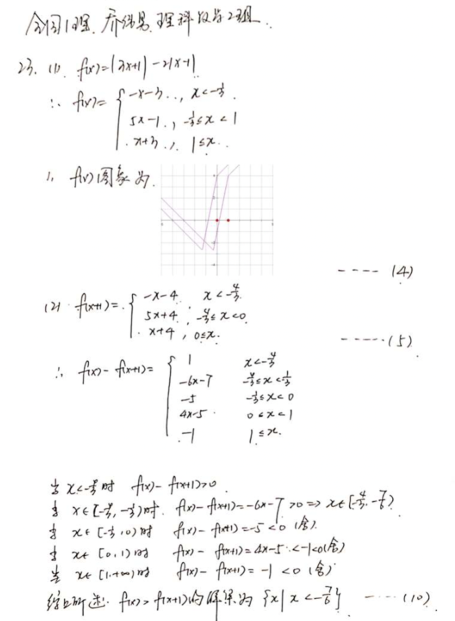 全国1理. 乔维易. 理科数学2组.
23. (1) f(x)=|3x+1|-2|x-1|
∴ f(x)= { -x-3 , x<-1/3 .
5x-1 , -1/3≤x<1
x+3 , 1≤x .
f(x)图象为.
---- (4)
(2) f(x+1)= { -x-4 x<-4/3
5x+4 , -4/3≤x<0
x+4 , 0≤x.
-----(5)
∴ f(x)-f(x+1)= { 1 x<-4/3
-6x-7 -4/3≤x<-1/3
-5 -1/3≤x<0
4x-5 0≤x<1
-1 1≤x.
当 x<-4/3 时 f(x)-f(x+1)>0
当 x∈[-4/3,-1/3)时. f(x)-f(x+1)=-6x-7>0 => x∈[-4/3,-7/6)
当 x∈[-1/3,0)时 f(x)-f(x+1)=-5<0 (舍).
当 x∈[0,1)时 f(x)-f(x+1)=4x-5<-1<0(舍)
当 x∈[1,+∞)时 f(x)-f(x+1)=-1<0 (舍)
综上所述. f(x)>f(x+1)的解集为 {x|x<-7/6} ----(10)